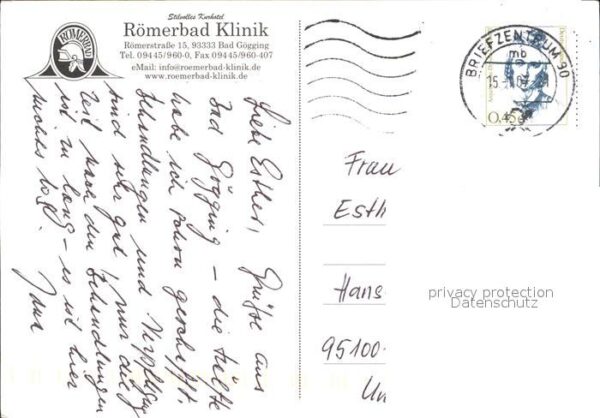 Stilvolles Kurhotel
Römerbad Klinik
Römerstraße 15, 93333 Bad Gögging
Tel. 09445/960-0, Fax 09445/960-407
eMail: info@roemerbad-klinik.de
www.roemerbad-klinik.de
RÖMERBAD
BRIEFZENTRUM 90
mb
0,45
Liebe Esther, Grüße aus
Bad Gögging – die Hälfte
habe ich schon geschafft.
Behandlungen und Verpflegung
sind sehr gut, nur die
Zeit nach den Behandlungen
ist zu lang – es ist hier
nichts los.
Frau
Esth
Hans
95100
Un
privacy protection
Datenschutz